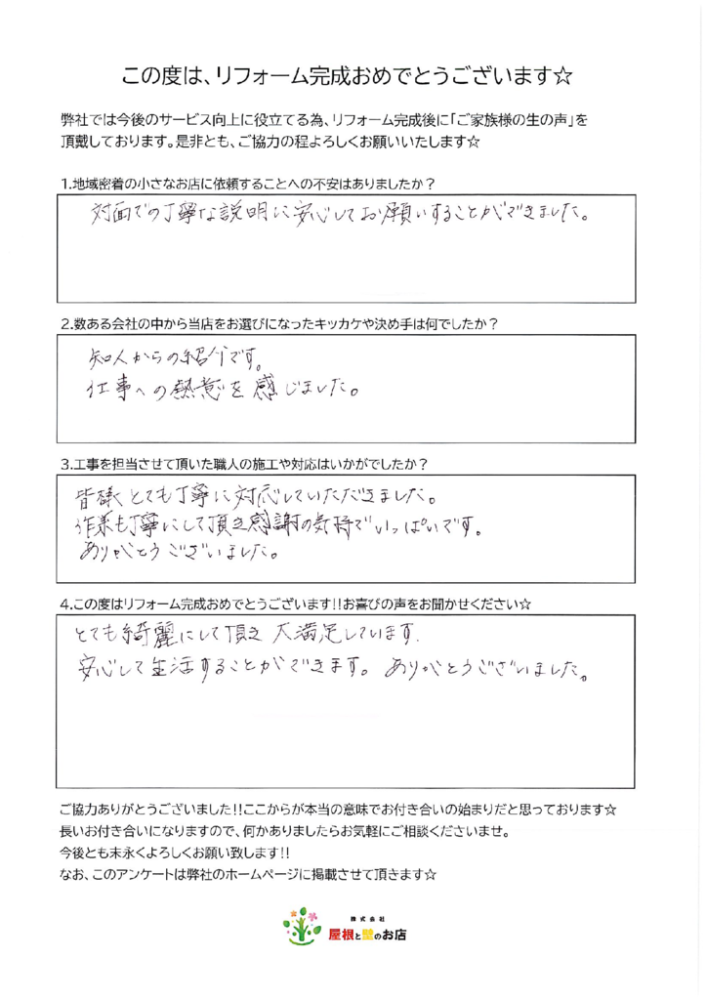 この度は、リフォーム完成おめでとうございます☆
弊社では今後のサービス向上に役立てる為、リフォーム完成後に「ご家族様の生の声」を
頂戴しております。是非とも、ご協力の程よろしくお願いいたします☆
1.地域密着の小さなお店に依頼することへの不安はありましたか？
対面での丁寧な説明に安心してお願いすることができました。
2.数ある会社の中から当店をお選びになったキッカケや決め手は何でしたか？
知人からの紹介です。
仕事への熱意を感じました。
3.工事を担当させて頂いた職人の施工や対応はいかがでしたか？
皆様とても丁寧に対応していただきました。
作業も丁寧にして頂き感謝の気持でいっぱいです。
ありがとうございました。
4.この度はリフォーム完成おめでとうございます!!お喜びの声をお聞かせください☆
とても綺麗にして頂き 大満足しています.
安心して生活することができます。 ありがとうございました。
ご協力ありがとうございました!!ここからが本当の意味でお付き合いの始まりだと思っております☆
長いお付き合いになりますので、何かありましたらお気軽にご相談くださいませ。
今後とも末永くよろしくお願い致します!!
なお、このアンケートは弊社のホームページに掲載させて頂きます☆
株式会社
屋根と壁のお店